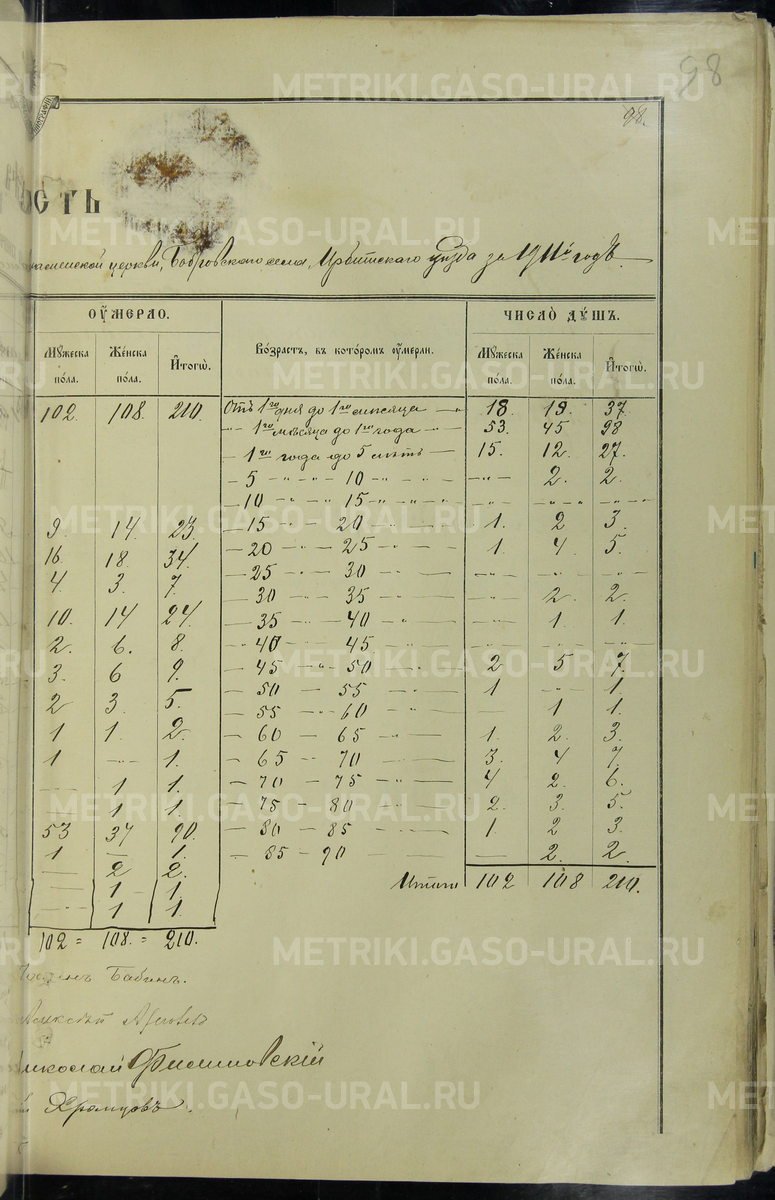 98
98.
ОСТЬ
церкви, Бобровскаго села, Ирбитскаго уѣзда за 1911й годъ.
ОУМЕРЛО. ЧИСЛО ДУШЪ.
Мужеска пола. Женска пола. Итогѡ. Возрастъ, въ которомъ оумерли. Мужеска пола. Женска пола. Итогѡ.
102. 108. 210. Отъ 1го дня до 1го мѣсяца — „ 18. 19. 37.
„ 1го мѣсяца до 1го года „ 53. 45 98
— 1го года до 5 лѣтъ — 15. 12. 27.
— 5 — „ — „ 10 — „ — „ — „ — 2. 2.
— 10 — „ — „ 15 — „ — „ — „ — „ — „ — „ — „
9. 14. 23. — 15 — „ — 20 — „ — 1. 2 3.
16. 18. 34. — 20 — „ — 25 — „ — 1. 4 5.
4. 3. 7. — 25 — „ 30 — „ — — „ — — „ — — „ —
— 30 — „ 35 — „ — — „ — 2. 2.
10. 14 24. — 35 — „ — 40 — „ — — 1. 1.
2. 6. 8. — 40 — 45. — „ — — „ —
3. 6 9. — 45 — „ — 50 — „ — 2 5 7.
2 3. 5. — 50 — 55 — „ — 1 — „ — 1.
— 55 — „ — 60 — „ — — 1 1.
1 1. 2. — 60 — 65 — „ — 1. 2. 3.
1 — „ — 1. — 65 „ 70 — „ — 3. 4 7
— 1 1. — 70 — 75 — „ — 4 2. 6.
1 1. — 75 — 80 — „ — 2. 3. 5.
53 37 90. — 80 — 85 — „ — 1. 2 3.
1 — 1. — 85 — 90 — — 2. 2.
— 2 2. Итого 102 108 210.
— 1 1.
— „ 1 1.
102 = 108. = 210.
Бабинъ.
Николай
Хромцовъ.
METRIKI.GASO-URAL.RU